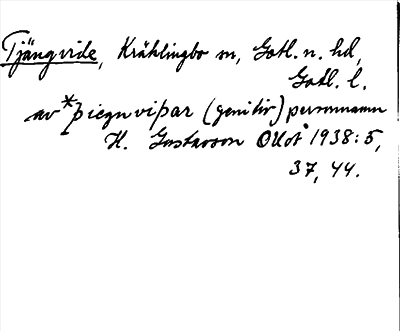 Tjängvide, Kräklingbo sn, Gotl. n. hd,
Gotl. l.
av *þiegnviþar (genitiv) personnamn
H. Gustavson OUoÅ 1938: 5,
37, 44.